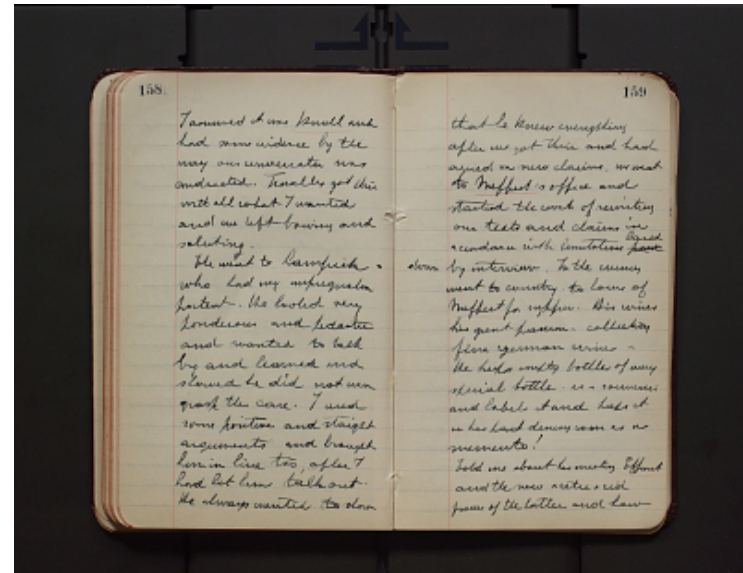 158
I assured it was Knoll and
had some evidence by the
way our conversation was
conducted. Finally got thru
with all what I wanted
and we left bowing and
saluting.
We went to
who had my impregnation
patent. He looked very
ponderous and pedantic
and wanted to talk
big and learned and
showed he did not even
grasp the case. I used
some positive and straight
arguments and brought
him in line too, after I
had let him talk out.
He always wanted to show
159
that he knew everything
after we got thru and had
agreed on new claims, we went
to Meffert's office and
started the work of rewriting
our texts and claims in
accordance with limitations laid
down by interview. In the evening
went to country to house of
Meffert for supper. His wines
his great passion - collecting
fine german wines -
He keeps empty bottles of every
special bottle as a souvenir
and labels it and keeps it
in his private dining room as a
memento!
Told me about his meeting
and the new nitric acid
process of the latter and how